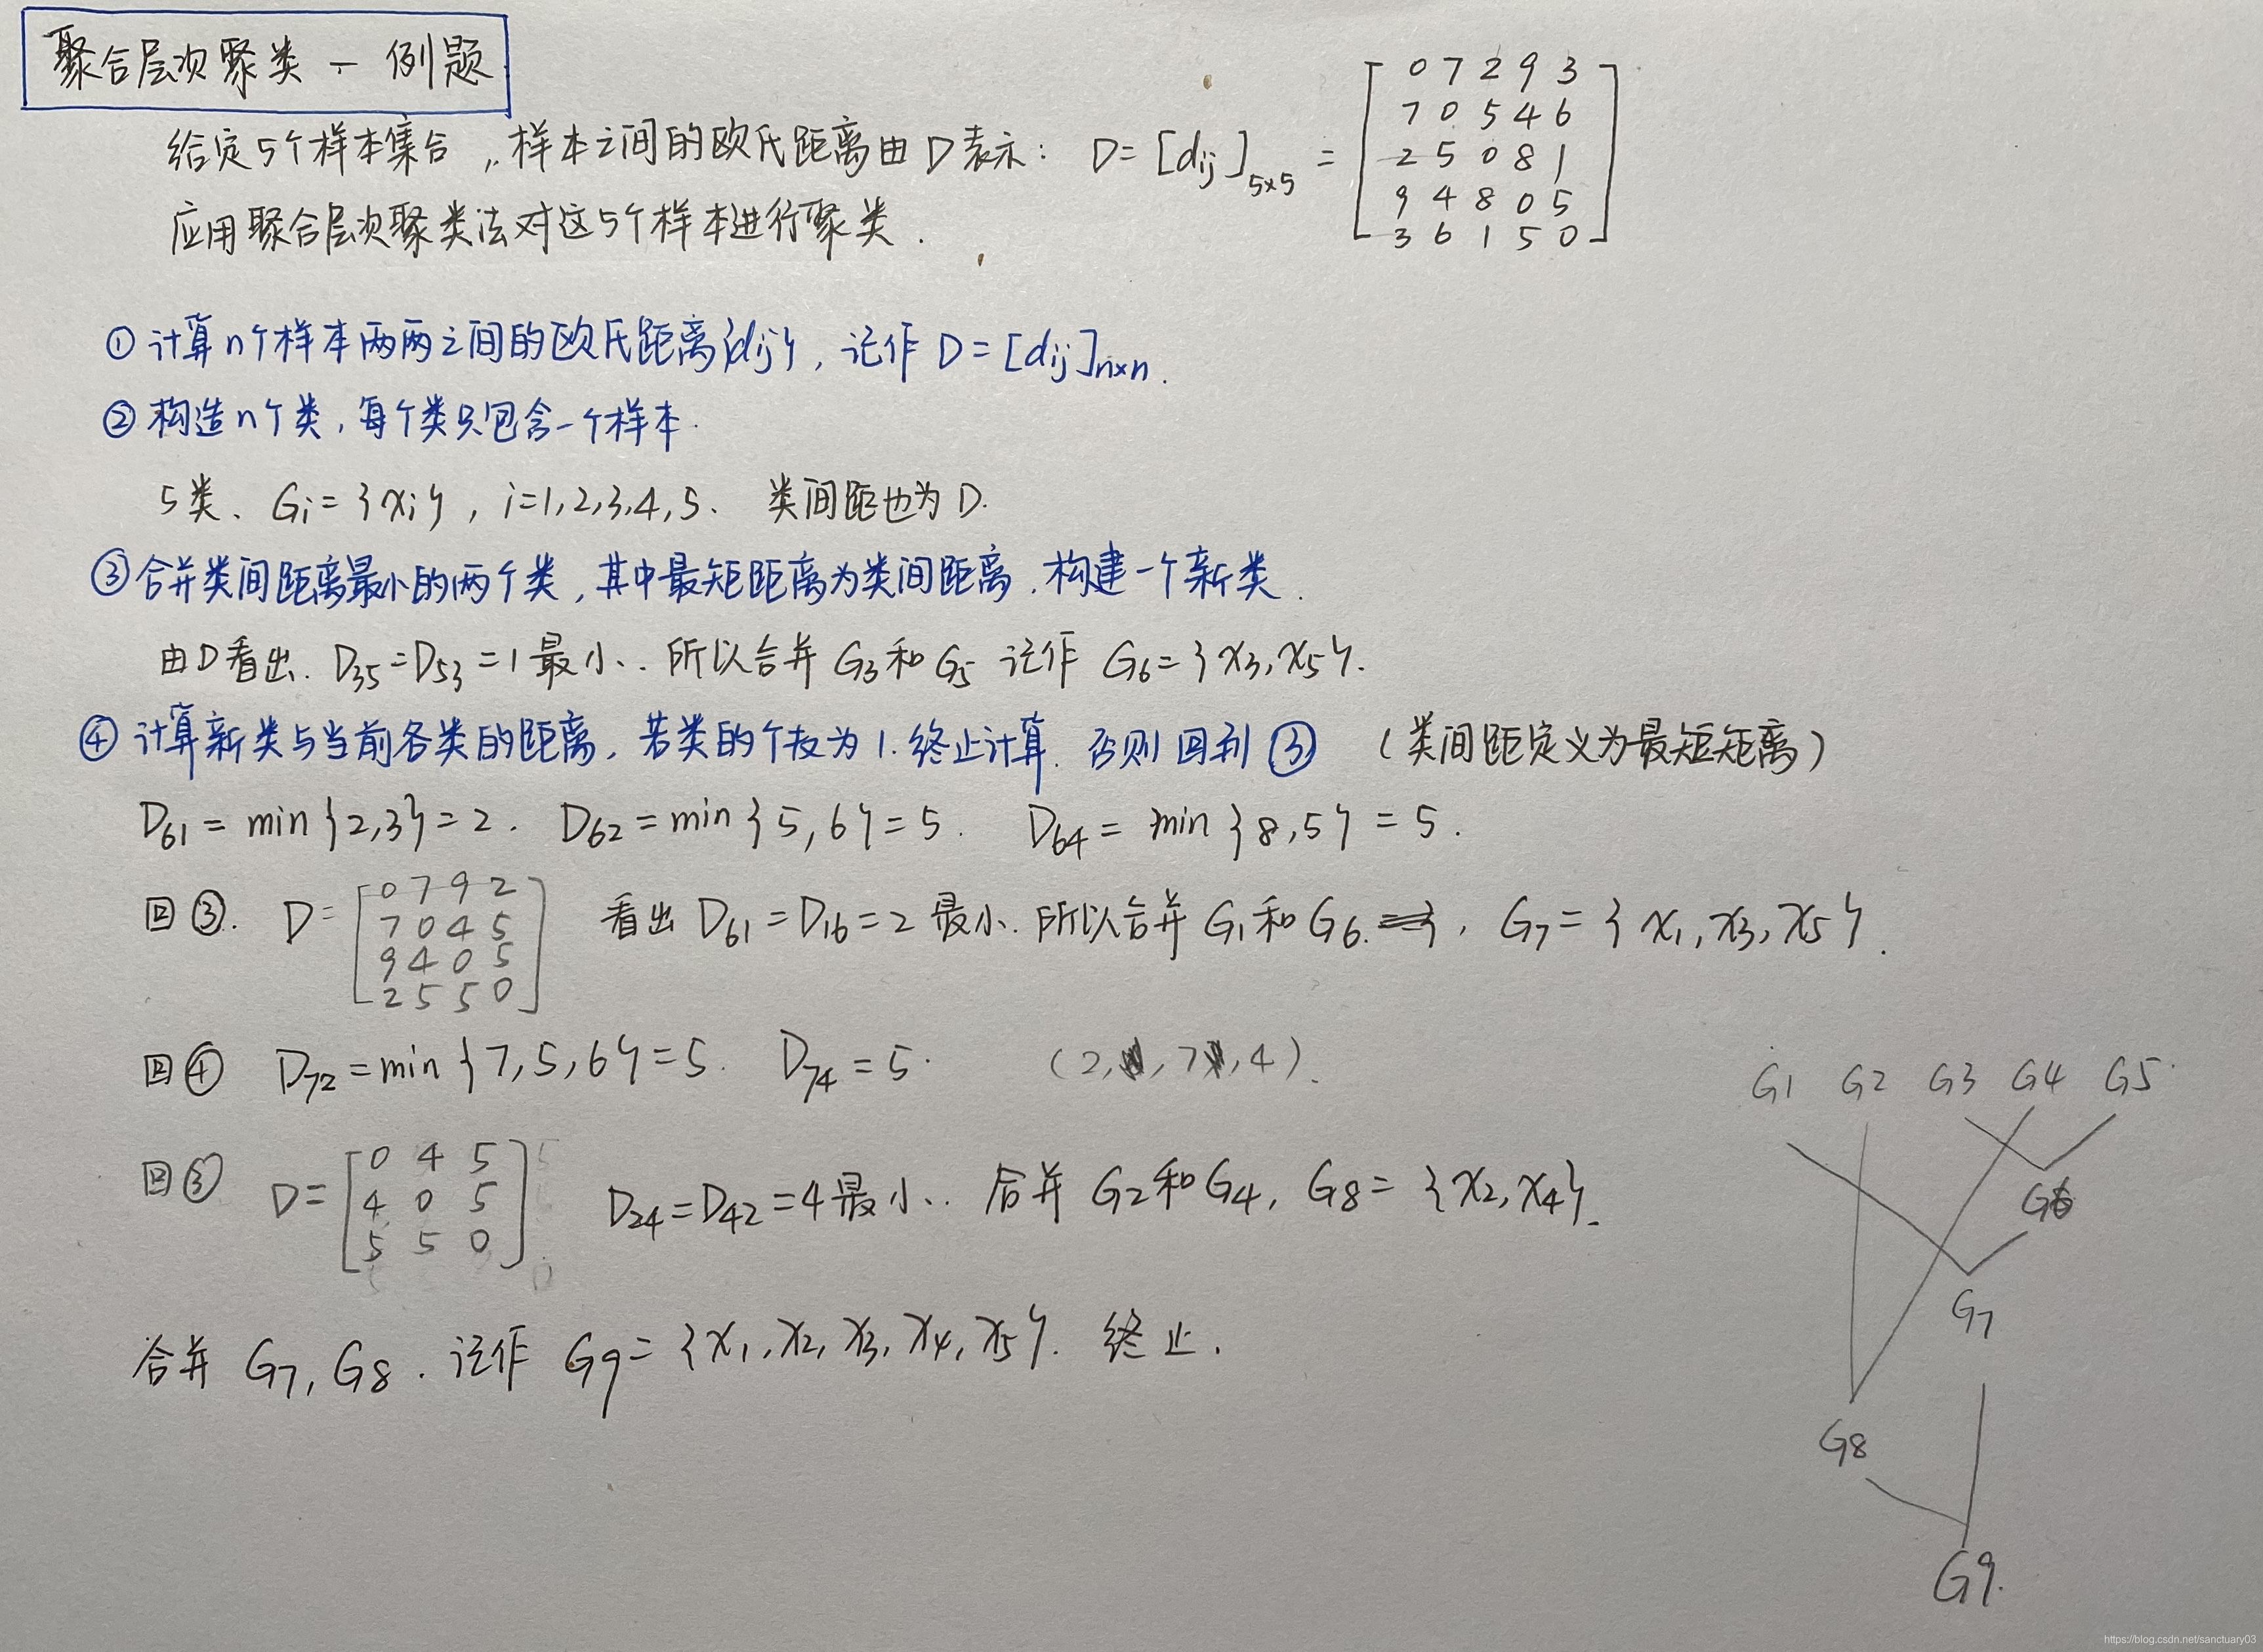 聚合层次聚类 - 例题
给定5个样本集合,样本之间的欧氏距离由D表示: D=[dij]5×5 =
0 7 2 9 3
7 0 5 4 6
2 5 0 8 1
9 4 8 0 5
3 6 1 5 0
应用聚合层次聚类法对这5个样本进行聚类.
① 计算n个样本两两之间的欧氏距离{dij},记作 D=[dij]n×n.
② 构造n个类,每个类只包含一个样本.
5类、Gi={xi},i=1,2,3,4,5、 类间距也为D.
③ 合并类间距离最小的两个类,其中最短距离为类间距离.构建一个新类.
由D看出. D35=D53=1最小.. 所以合并 G3和G5 记作 G6={x3,x5}.
④ 计算新类与当前各类的距离,若类的个数为1.终止计算. 否则回到③ (类间距定义为最短距离)
D61=min{2,3}=2. D62=min{5,6}=5. D64=min{8,5}=5.
回③. D=
0 7 9 2
7 0 4 5
9 4 0 5
2 5 5 0
看出 D61=D16=2 最小.所以合并 G1和G6. , G7={x1,x3,x5}.
回④ D72=min{7,5,6}=5. D74=5. (2, , 7 , 4).
回③ D=
0 4 5
4 0 5
5 5 0
D24=D42=4最小.. 合并 G2和G4, G8={x2,x4}.
合并 G7,G8.记作 G9={x1,x2,x3,x4,x5}. 终止.
G1 G2 G3 G4 G5
G6
G7
G8
G9.
https://blog.csdn.net/sanctuary03